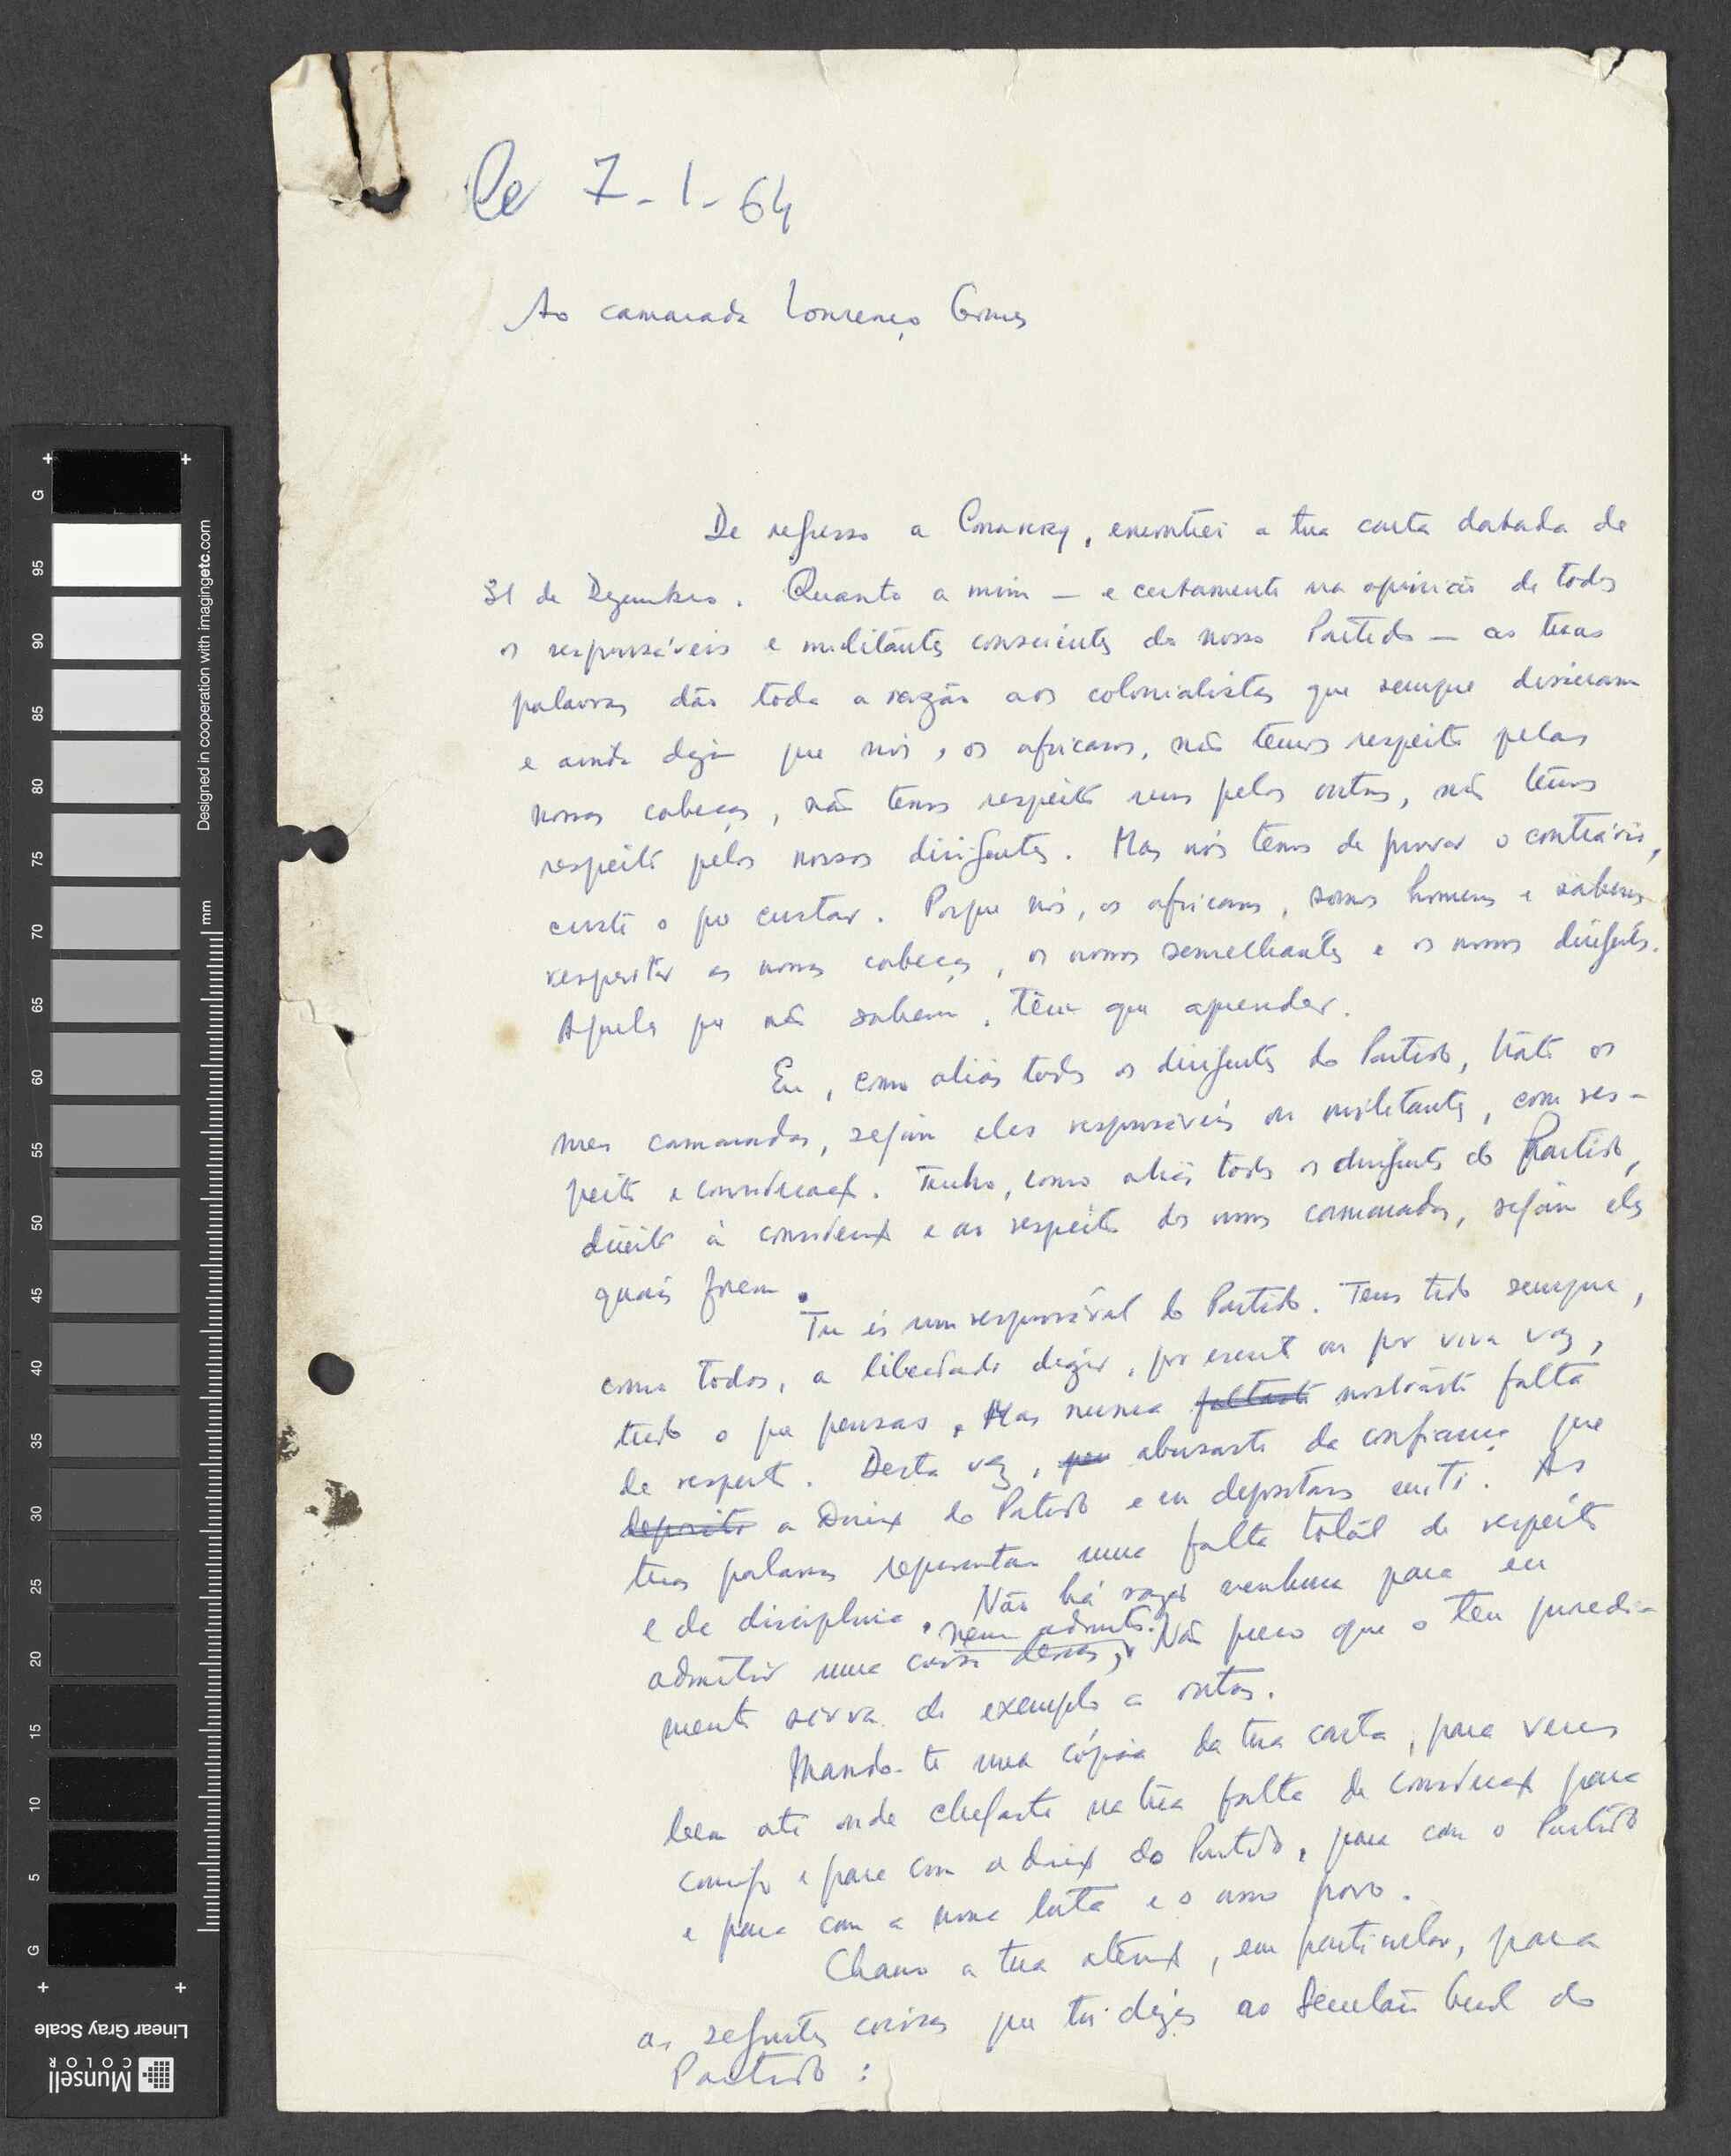 Le 7-1-64
Ao camarada Lourenço Gomes
De regresso a Conakry, encontrei a tua carta datada de
31 de Dezembro. Quanto a mim — e certamente na opinião de todos
os responsáveis e militantes conscientes do nosso Partido — as tuas
palavras dão toda a razão aos colonialistas que sempre disseram
e ainda dizem que nós, os africanos, não temos respeito pelas
nossas cabeças, não temos respeito uns pelos outros, não temos
respeito pelos nossos dirigentes. Mas nós temos de provar o contrário,
custe o que custar. Porque nós, os africanos, somos homens e sabemos
respeitar as nossas cabeças, os nossos semelhantes e os nossos dirigentes.
Aqueles que não sabem, têm que aprender.
Eu, como aliás todos os dirigentes do Partido, trato os
meus camaradas, sejam eles responsáveis ou militantes, com res-
peito e consideração. Tenho, como aliás todos os dirigentes do Partido,
direito à consideração e ao respeito dos nossos camaradas, sejam eles
quais forem.
Tu és um responsável do Partido. Tens tido sempre,
como todos, a liberdade dizer, por escrito ou por viva voz,
tudo o que pensas. Mas nunca faltaste mostraste falta
de respeito. Desta vez, abusaste da confiança que
deposito a Direcção do Partido e eu depositamos em ti. As
tuas palavras representam uma falta total de respeito
e de disciplina. Não há razão nenhuma para eu
admitir uma coisa dessas, nem admito. Não quero que o teu procedi-
mento sirva de exemplo a outros.
Mando-te uma cópia da tua carta, para veres
bem até onde chegaste na tua falta de consideração para
comigo e para com a direcção do Partido, para com o Partido
e para com a nossa luta e o nosso povo.
Chamo a tua atenção, em particular, para
as seguintes coisas que tu dizes ao Secretário Geral do
Partido:
+ +
G 95 90 85 80 75 70 65 60 55 50 45 40 35 30 25 20 15 10 5 G
mm
Designed in cooperation with imagingetc.com
+ +
Munsell
COLOR
Linear Gray Scale